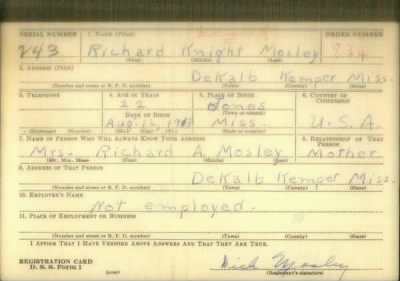 SERIAL NUMBER 1. NAME (Print) ORDER NUMBER
243 Richard Knight Mosley 834
(First) (Middle) (Last)
2. ADDRESS (Print)
DeKalb Kemper Miss.
(Number and street or R. F. D. number) (Town) (County) (State)
3. TELEPHONE 4. AGE IN YEARS 5. PLACE OF BIRTH 6. COUNTRY OF CITIZENSHIP
22 Jones
DATE OF BIRTH (Town or county)
Aug. 15, 1918 Miss. U.S.A.
(Exchange) (Number) (Mo.) (Day) (Yr.) (State or country)
7. NAME OF PERSON WHO WILL ALWAYS KNOW YOUR ADDRESS 8. RELATIONSHIP OF THAT PERSON
Mrs. Richard A. Mosley Mother
(Mr., Mrs., Miss) (First) (Middle) (Last)
9. ADDRESS OF THAT PERSON
DeKalb Kemper Miss.
(Number and street or R. F. D. number) (Town) (County) (State)
10. EMPLOYER'S NAME
Not employed.
11. PLACE OF EMPLOYMENT OR BUSINESS
(Number and street or R. F. D. number) (Town) (County) (State)
I AFFIRM THAT I HAVE VERIFIED ABOVE ANSWERS AND THAT THEY ARE TRUE.
REGISTRATION CARD
D. S. S. Form 1 (over) Dick Mosley
(Registrant's signature)